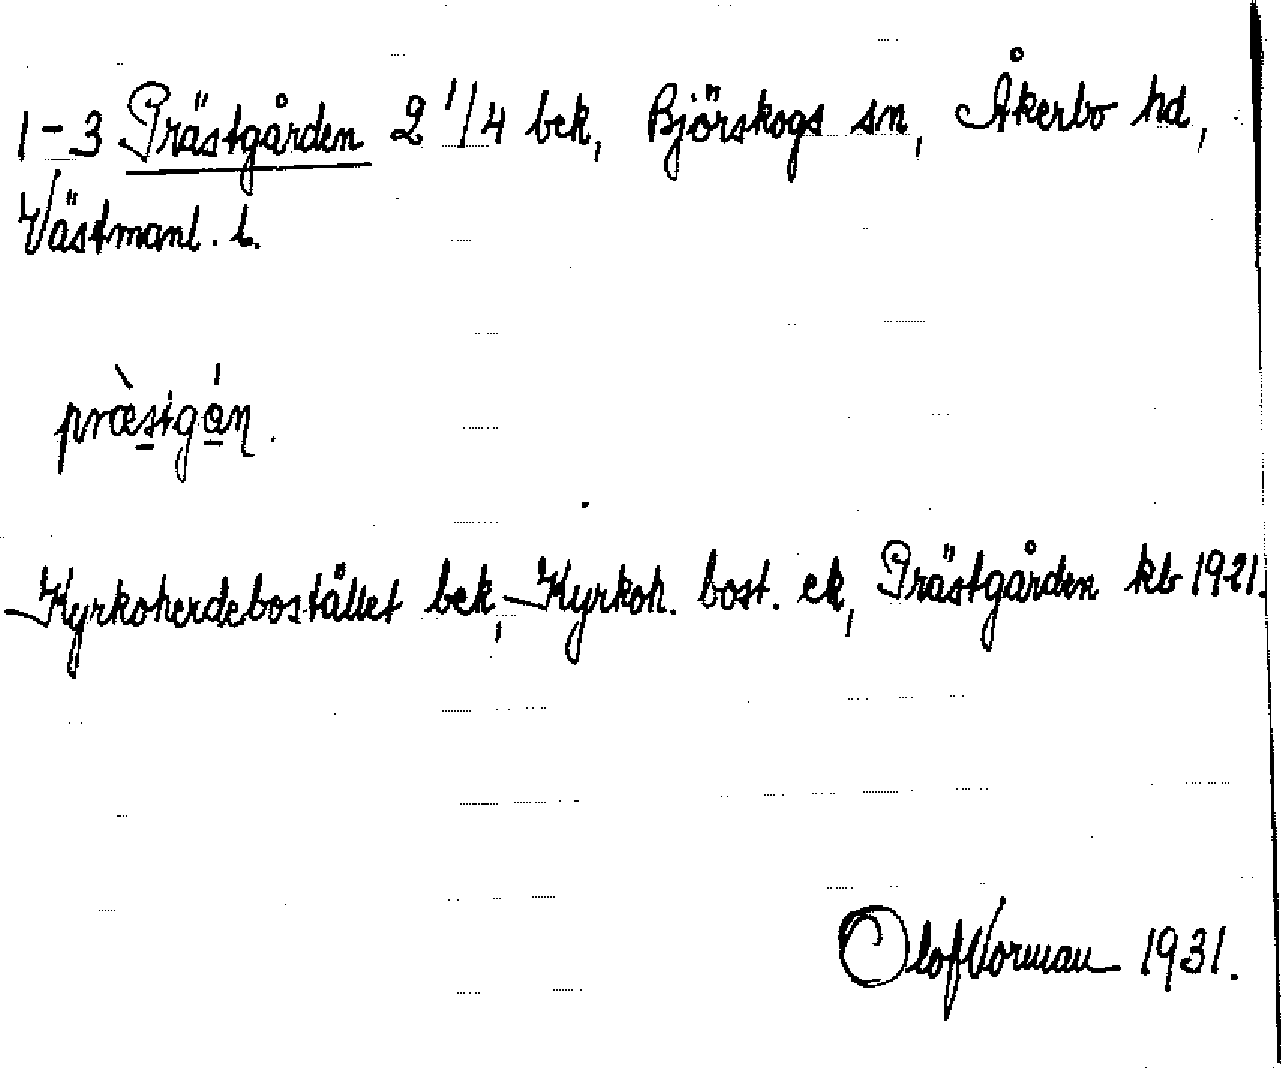 1-3 Prästgården 2 1/4 bek, Björskogs sn, Åkerbo hd,
Västmanl. l.
præ̀stgɑ́n.
Kyrkoherdebostället bek, Kyrkoh. bost. ek, Prästgården kb 1921.
Olof Vorman 1931.